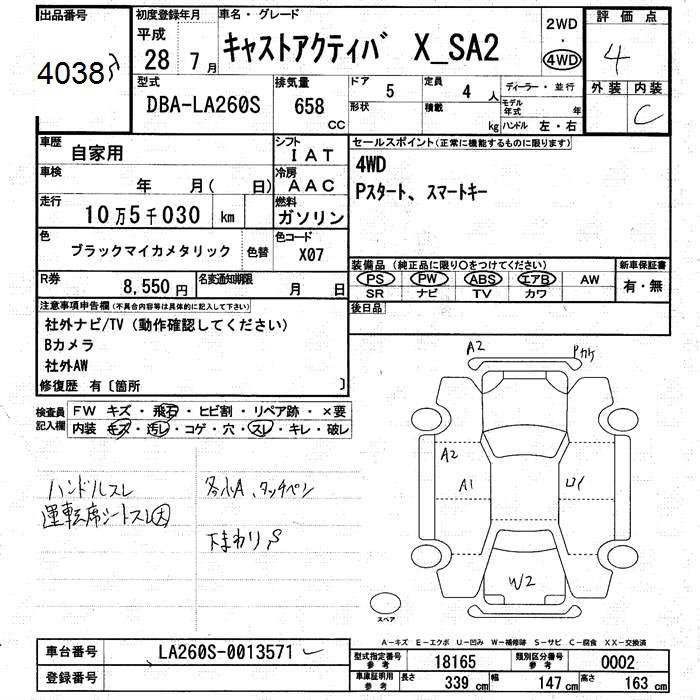 出品番号
4038
初度登録年月
平成
28年 7月
車名・グレード
キャストアクティバ X_SA2
2WD
・
4WD
評価点
4
外装 内装
C
型式
DBA-LA260S
排気量
658
CC
ドア
5
定員
4 人
形状
積載
kg
ディーラー・並行
モデル年式 年
ハンドル 左・右
車歴
自家用
シフト
IAT
車検
年 月( 日)
冷房
AAC
走行
10万5千030 km
燃料
ガソリン
色
ブラックマイカメタリック
色替
色コード
X07
R券
8,550円
名変通知期限
月 日
セールスポイント(正常に機能するものに限ります)
4WD
Pスタート、スマートキー
装備品(純正品に限り○をつけてください)
PS PW ABS エアB AW
SR ナビ TV カワ
新車保証書
有・無
後日品
注意事項申告欄(不具合内容等は具体的に記入して下さい)
社外ナビ/TV(動作確認してください)
Bカメラ
社外AW
修復歴 有〔箇所 〕
検査員
記入欄
FW キズ・飛石・ヒビ割・リペア跡・×要
内装 キズ・汚レ・コゲ・穴・スレ・キレ・破レ
ハンドルスレ
運転席シートスレ大
各小A、タッチペン
下まわりS
A2
Pカケ
A2
A1
W2
スペア
A-キズ E-エクボ U-凹み W-補修跡 S-サビ C-腐食 XX-交換済
車台番号
LA260S-0013571
登録番号
型式指定番号
参考
18165
類別区分番号
参考
0002
車庫証明用
参考
長さ 339 cm
幅 147 cm
高さ 163 cm